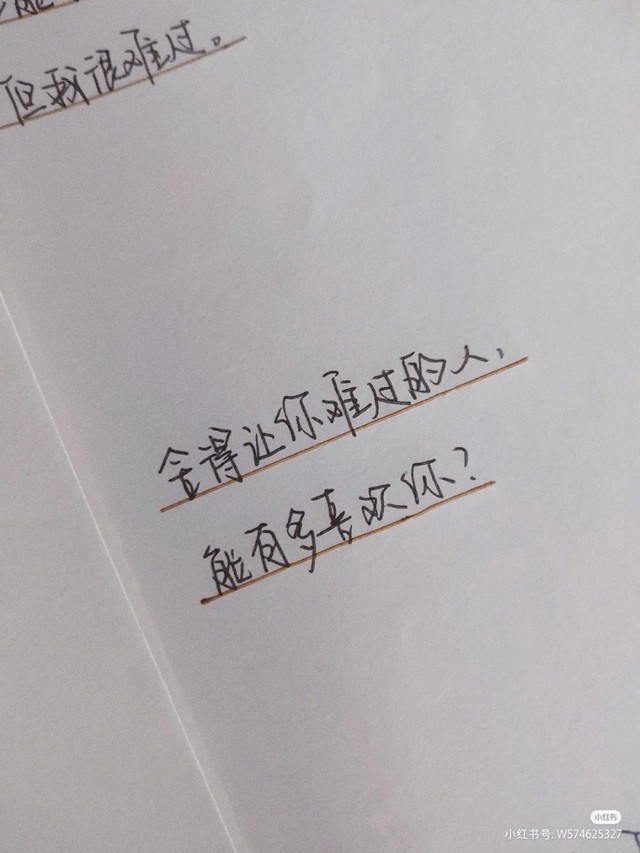 但我很难过。
舍得让你难过的人,
能有多喜欢你?
小红书
小红书号: W574625327